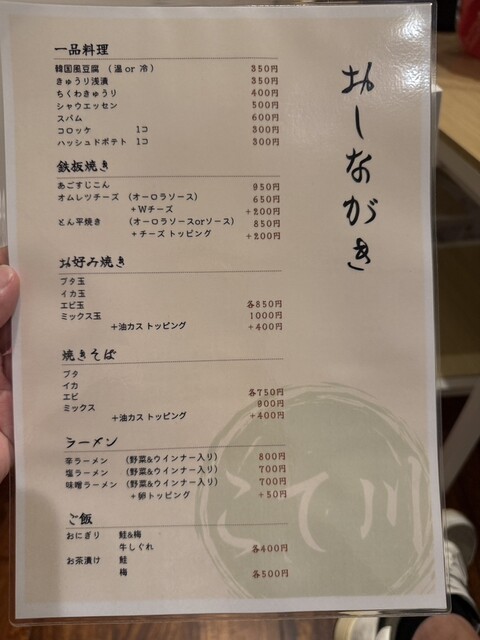 おしながき
一品料理
韓国風豆腐 (温 or 冷) 350円
きゅうり浅漬 350円
ちくわきゅうり 400円
シャウエッセン 500円
スパム 600円
コロッケ 1コ 300円
ハッシュドポテト 1コ 300円
鉄板焼き
あごすじこん 950円
オムレツチーズ (オーロラソース) 650円
+Wチーズ +200円
とん平焼き (オーロラソースorソース) 850円
+チーズ トッピング +200円
お好み焼き
ブタ玉
イカ玉
エビ玉 各850円
ミックス玉 1000円
+油カス トッピング +400円
焼きそば
ブタ
イカ
エビ 各750円
ミックス 900円
+油カス トッピング +400円
ラーメン
辛ラーメン (野菜&ウインナー入り) 800円
塩ラーメン (野菜&ウインナー入り) 700円
味噌ラーメン (野菜&ウインナー入り) 700円
+卵トッピング +50円
ご飯
おにぎり 鮭&梅
牛しぐれ 各400円
お茶漬け 鮭
梅 各500円
こて川